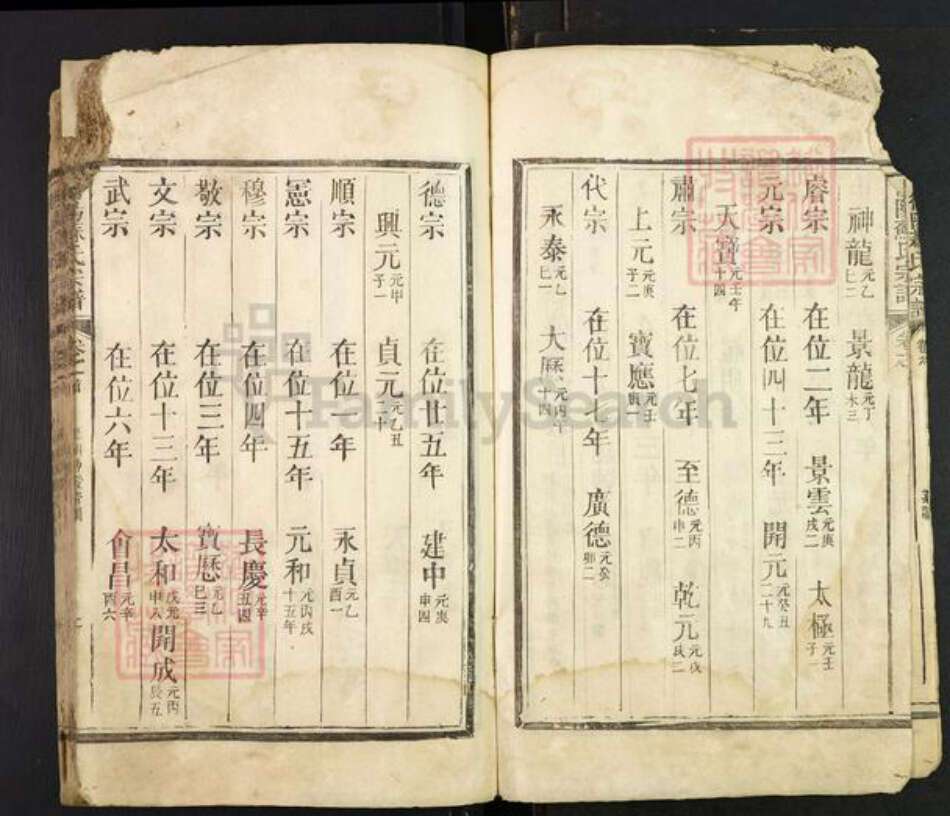 神龍元乙巳二 景龍元丁未三
睿宗 在位二年 景雲元庚戌二 太極元壬子一
元宗 在位四十三年 開元元癸丑二十九
天寳元壬午十四
肅宗 在位七年 至德元丙申二 乾元元戊戌二
上元元庚子二 寳應元壬寅一
代宗 在位十七年 廣德元癸卯二
永泰元乙巳一 大厯元丙午十四
德宗 在位廿五年 建中元庚申四
興元元甲子一 貞元元乙丑二十
順宗 在位 年 永貞元乙酉一
憲宗 在位十五年 元和元丙戌十五年
穆宗 在位四年 長慶元辛丑四
敬宗 在位三年 寳厯元乙巳三
文宗 在位十三年 太和戊元申八 開成元丙辰五
武宗 在位六年 會昌元辛酉六
氏宗譜
FamilySearch